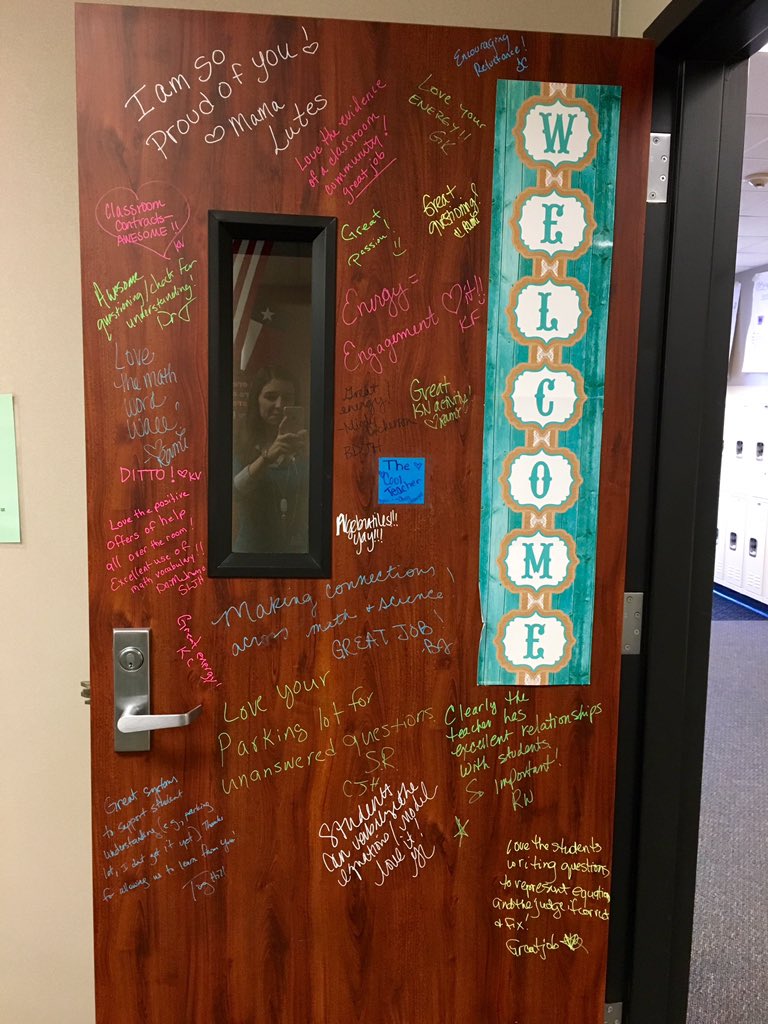 I am so
proud of you!
Mama
Lutes
Encouraging
Reluctance!
Love the evidence
of a classroom
community!
great job
Love your
ENERGY!!
GK
WELCOME
Classroom
Contracts-
AWESOME!!
KV
Great
passion!
Great
questioning!
Awesome
questioning/check for
understanding!
Energy =
Engagement
it!!
KF
Love
the math
word
wall!
Great
energy!
Great
KN activity!
DITTO! KV
The
Cool
Teacher
Love the positive
offers of help
all over the room!
Excellent use of
math vocabulary!!!
SLJH
Algebratiles!!!
yay!!!
Making connections
across math & science!
GREAT JOB!
BJ
Great energy!
KC
Love your
Parking lot for
unanswered questions
SR
CJH
Clearly the
teacher has
excellent relationships
with students
So important!
RW
Great systems
to support student
understanding (e.g., parking
lot, I don't get it yet) Thanks
for allowing us to learn from you!
Students
can verbalize the
equations/model
love it!
Love the students
writing questions
to represent equation
and the judge if correct
& fix!
Great job